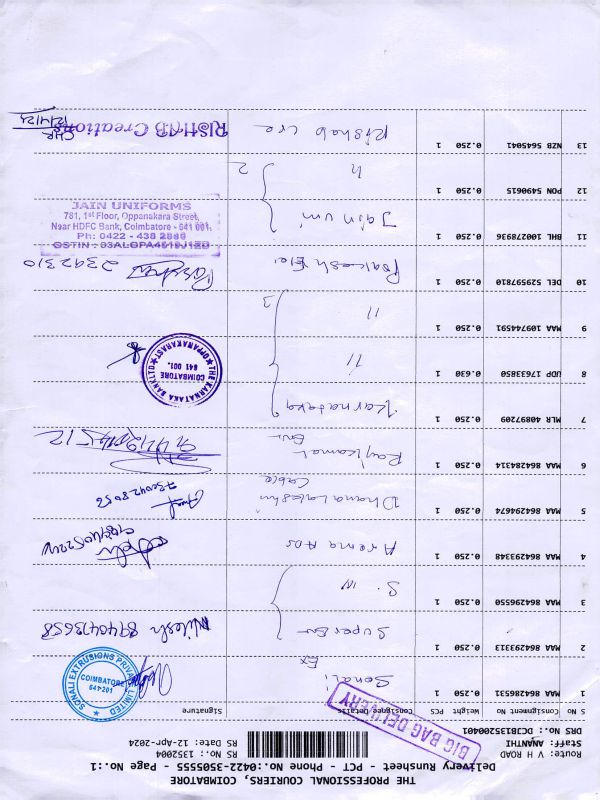 THE PROFESSIONAL COURIERS, COIMBATORE
Delivery Runsheet - PCT - Phone No:0422-3505555 - Page No.:1
Route: V H ROAD
Staff: ANANTHI
DRS No.: DCB135200401
RS No.: 1352004
RS Date: 12-Apr-2024
BIG BAG DELIVERY
S No Consignment No Weight PCS Consignee Details Signature
1 MAA 864286531 0.250 1 Sonali Ex
SONALI EXTRUSIONS PRIVATE LIMITED
COIMBATORE
641 201
2 MAA 864293313 0.250 1 Super Enr
Nilesh 8940473658
3 MAA 864296550 0.250 1 S. IN
4 MAA 864293348 0.250 1 Arema Ads
5 MAA 864294674 0.250 1 Dhanalakshmi Cable
6 MAA 864284314 0.250 1 Rajkamal
7 MLR 40897209 0.250 1 Karnataka
8 UDP 17633850 0.630 1 11
THE KARNATAKA BANK LTD
OPPANAKARAST
COIMBATORE
641 001.
9 MAA 109744591 0.250 1 11
3
10 DEL 529597810 0.250 1 Prakash Ele
2392310
11 BHL 100278936 0.250 1 Jain uni
JAIN UNIFORMS
781, 1st Floor, Oppanakara Street,
Near HDFC Bank, Coimbatore - 641 001.
Ph: 0422 - 438 2886
12 PON 5490615 0.250 1 11
2
13 NZB 5645041 0.250 1 Rishab cre
RISHAB Creations
12/4/24